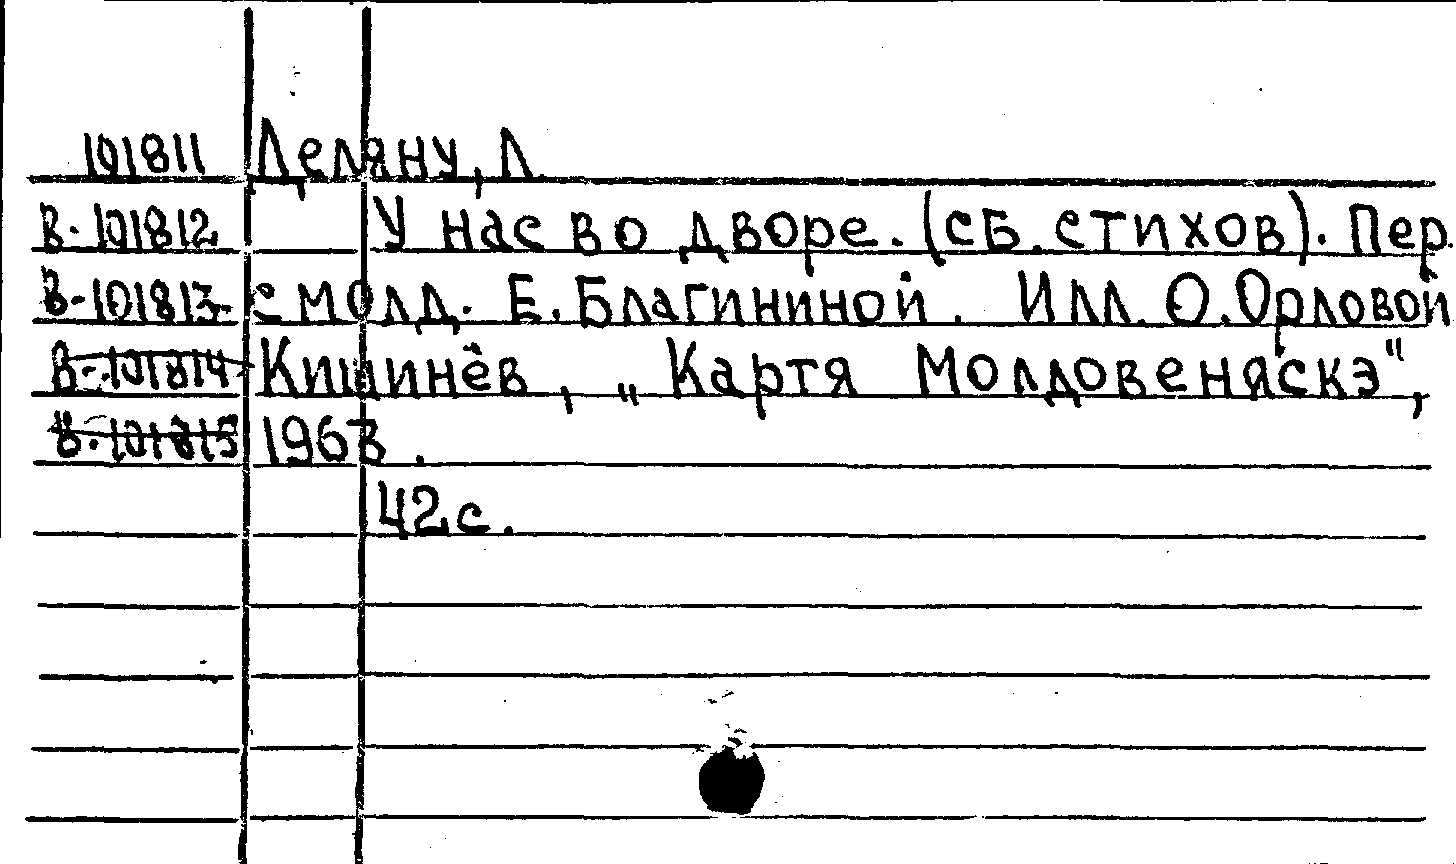 101811 Деляну, Л.
В-101812 У нас во дворе. (сб. стихов). Пер.
В-101813 с молд. Е. Благининой. Илл. О. Орловой
В-101814 Кишинёв, „Картя Молдовеняскэ",
В-101815 1963.
42 с.